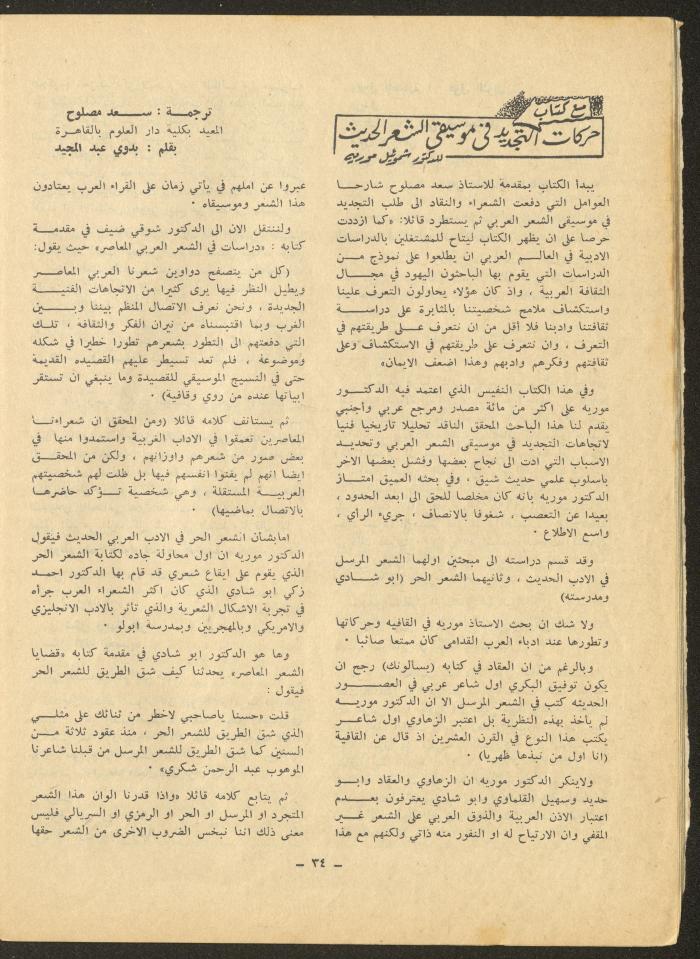 مع كتاب
حركات التجديد في موسيقى الشعر الحديث
للدكتور شموئيل موريه
يبدأ الكتاب بمقدمة للاستاذ سعد مصلوح شارحا
العوامل التي دفعت الشعراء والنقاد الى طلب التجديد
في موسيقى الشعر العربي ثم يستطرد قائلا: «كما ازددت
حرصا على ان يظهر الكتاب ليتاح للمشتغلين بالدراسات
الادبية في العالم العربي ان يطلعوا على نموذج من
الدراسات التي يقوم بها الباحثون اليهود في مجال
الثقافة العربية ، واذ كان هؤلاء يحاولون التعرف علينا
واستكشاف ملامح شخصيتنا بالمثابرة على دراسة
ثقافتنا وادبنا فلا أقل من ان نتعرف على طريقتهم في
التعرف ، وان نتعرف على طريقتهم في الاستكشاف وعلى
ثقافتهم وفكرهم وادبهم وهذا اضعف الايمان»
وفي هذا الكتاب النفيس الذي اعتمد فيه الدكتور
موريه على اكثر من مائة مصدر ومرجع عربي وأجنبي
يقدم لنا هذا الباحث المحقق الناقد تحليلا تاريخيا فنيا
لاتجاهات التجديد في موسيقى الشعر العربي وتحديد
الاسباب التي ادت الى نجاح بعضها وفشل بعضها الاخر
باسلوب علمي حديث شيق ، وفي بحثه العميق امتاز
الدكتور موريه بانه كان مخلصا للحق الى ابعد الحدود ،
بعيدا عن التعصب ، شغوفا بالانصاف ، جريء الرأي ،
واسع الاطلاع ٠
وقد قسم دراسته الى مبحثين اولهما الشعر المرسل
في الادب الحديث ، وثانيهما الشعر الحر (ابو شادي
ومدرسته)
ولا شك ان بحث الاستاذ موريه في القافيه وحركاتها
وتطورها عند ادباء العرب القدامى كان ممتعا صائبا ٠
وبالرغم من ان العقاد في كتابه (يسالونك) رجح ان
يكون توفيق البكري اول شاعر عربي في العصور
الحديثه كتب في الشعر المرسل الا ان الدكتور موريه
لم يأخذ بهذه النظرية بل اعتبر الزهاوي اول شاعر
يكتب هذا النوع في القرن العشرين اذ قال عن القافية
(انا اول من نبذها ظهريا) ٠
ولاينكر الدكتور موريه ان الزهاوي والعقاد وابو
حديد وسهيل القلماوي وابو شادي يعترفون بعدم
اعتبار الاذن العربية والذوق العربي على الشعر غير
المقفى وان الارتياح له او النفور منه ذاتي ولكنهم مع هذا
ترجمة : سعد مصلوح
المعيد بكلية دار العلوم بالقاهرة
بقلم : بدوي عبد المجيد
عبروا عن املهم في يأتي زمان على القراء العرب يعتادون
هذا الشعر وموسيقاه ٠
ولنننتقل الان الى الدكتور شوقي ضيف في مقدمة
كتابه : «دراسات في الشعر العربي المعاصر» حيث يقول:
(كل من يتصفح دواوين شعرنا العربي المعاصر
ويطيل النظر فيها يرى كثيرا من الاتجاهات الفنية
الجديدة ، ونحن نعرف الاتصال المنظم بيننا وبين
الغرب وبما اقتبسناه من نيران الفكر والثقافة ، تلك
التي دفعتهم الى التطور بشعرهم تطورا خطيرا في شكله
وموضوعة ، فلم تعد تسيطر عليهم القصيده القديمة
حتى في النسيج الموسيقي للقصيدة وما ينبغي ان تستقر
ابياتها عنده من روي وقافية) ٠
ثم يستانف كلامه قائلا (ومن المحقق ان شعراءنا
المعاصرين تعمقوا في الاداب الغربية واستمدوا منها في
بعض صور من شعرهم واوزانهم ، ولكن من المحقق
ايضا انهم لم يفنوا انفسهم فيها بل ظلت لهم شخصيتهم
العربية المستقلة ، وهي شخصية تؤكد حاضرها
بالاتصال بماضيها) ٠
امابشأن الشعر الحر في الادب العربي الحديث فيقول
الدكتور موريه ان اول محاولة جاده لكتابة الشعر الحر
الذي يقوم على ايقاع شعري قد قام بها الدكتور احمد
زكي ابو شادي الذي كان اكثر الشعراء العرب جرأه
في تجربة الاشكال الشعرية والذي تأثر بالادب الانجليزي
والامريكي وبالمهجريين وبمدرسة ابولو ٠
وها هو الدكتور ابو شادي في مقدمة كتابه «قضايا
الشعر المعاصر» يحدثنا كيف شق الطريق للشعر الحر
فيقول :
قلت «حسنا ياصاحبي لاخطر من ثنائك على مثلي
الذي شق الطريق للشعر الحر ، منذ عقود ثلاثة من
السنين كما شق الطريق للشعر المرسل من قبلنا شاعرنا
الموهوب عبد الرحمن شكري» ٠
ثم يتابع كلامه قائلا «واذا قدرنا الوان هذا الشعر
المتجرد او المرسل او الحر او الرمزي او السريالي فليس
معنى ذلك اننا نبخس الضروب الاخرى من الشعر حقها
– ٣٤ –